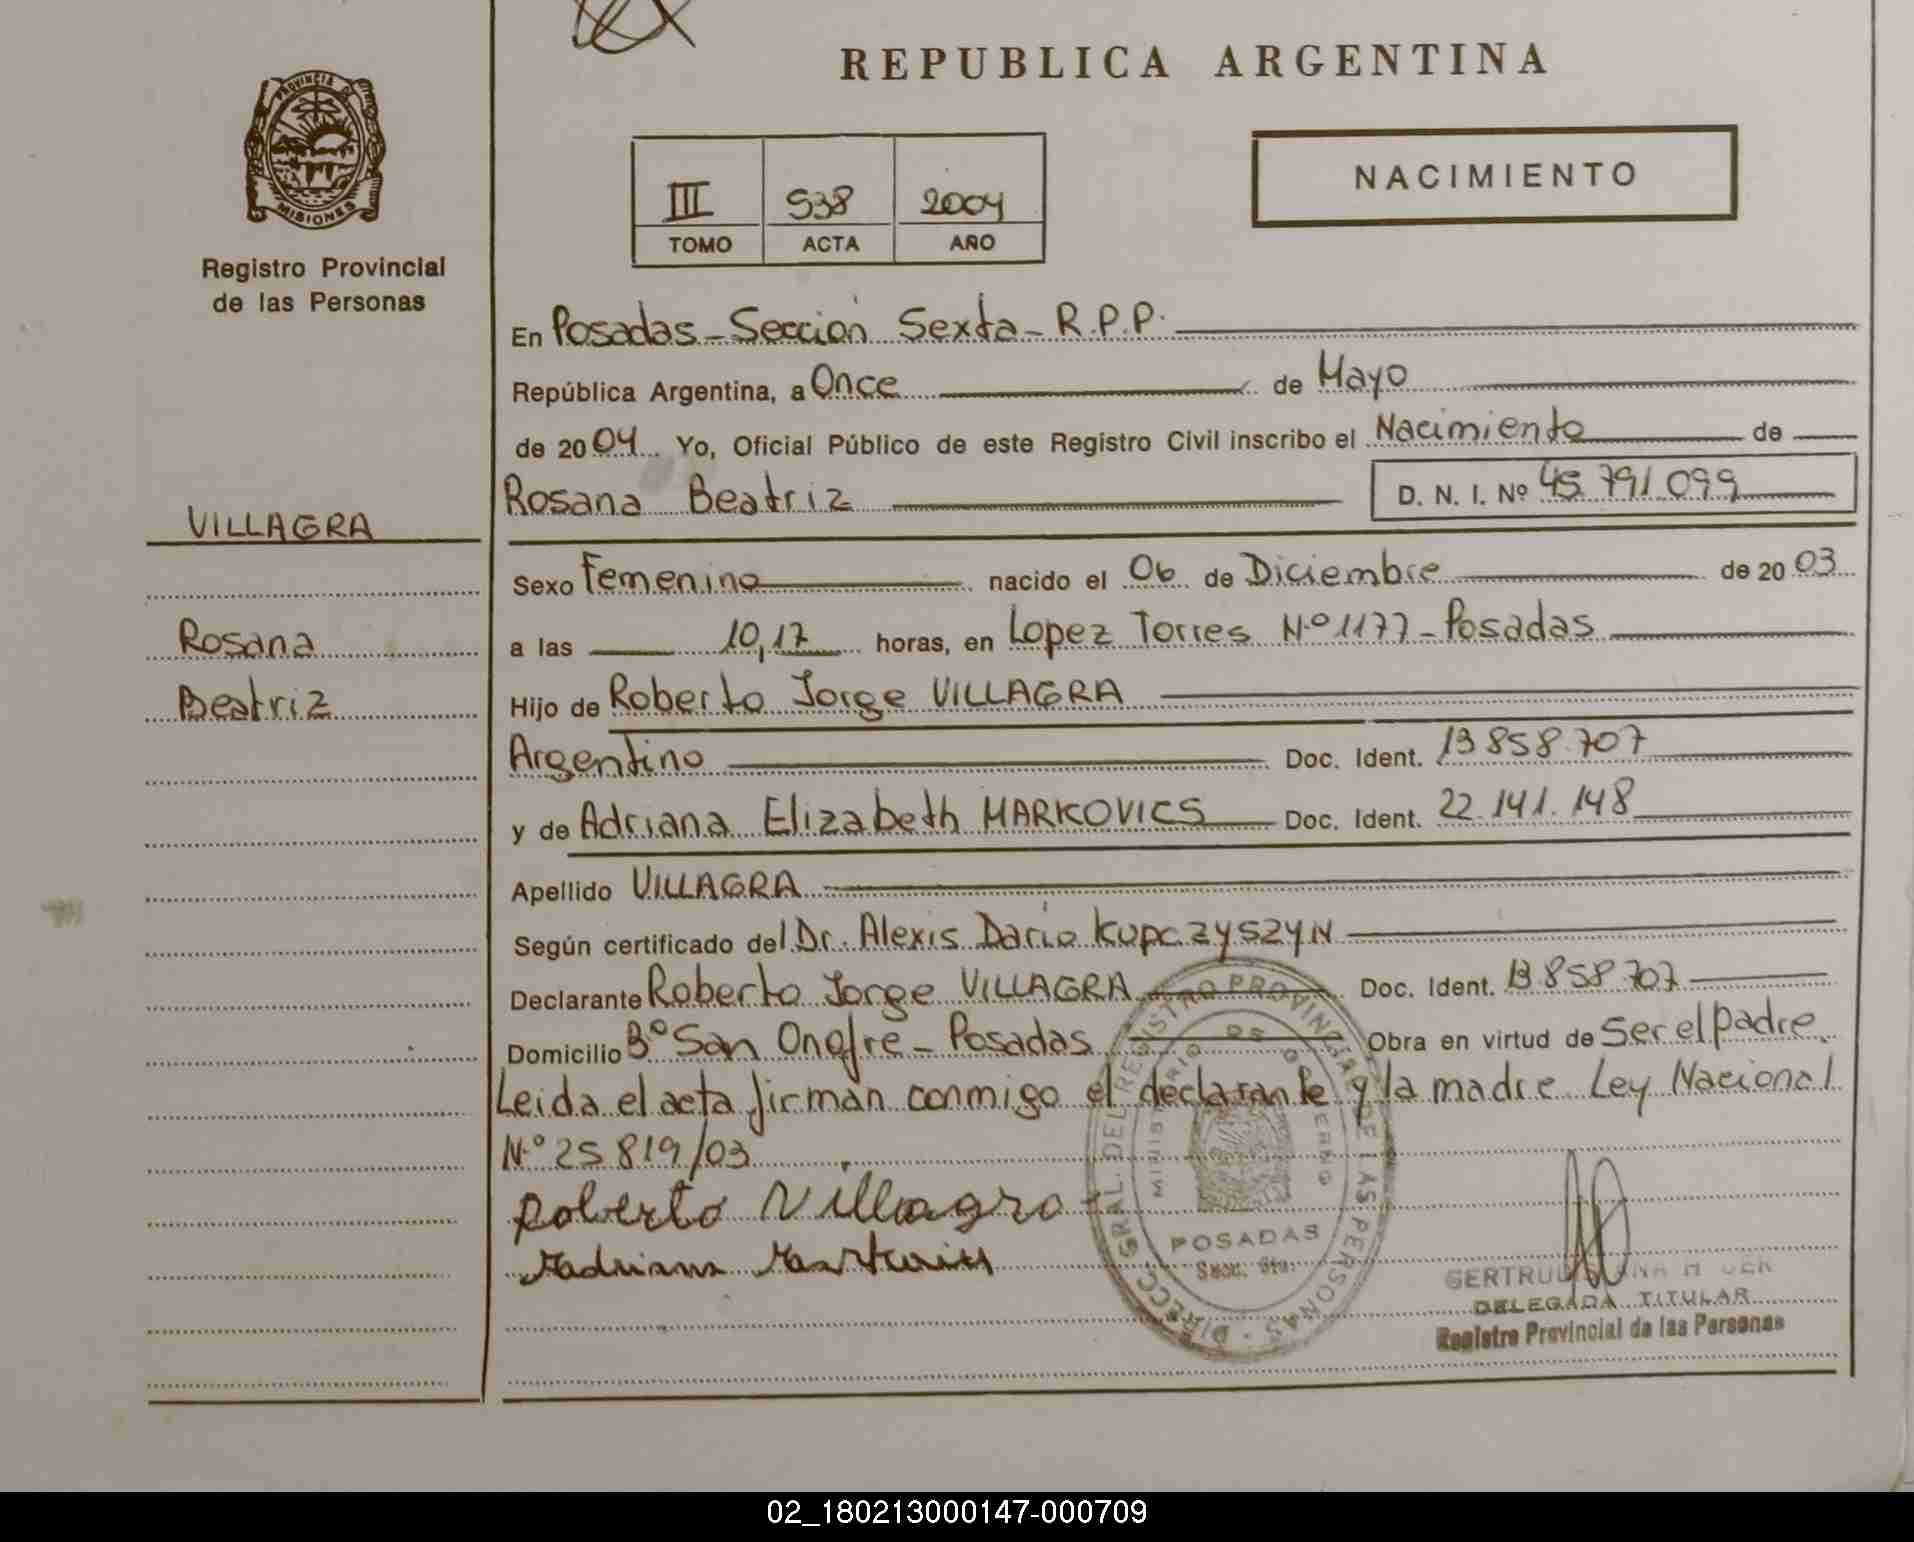 REPUBLICA ARGENTINA
PROVINCIA DE
MISIONES
Registro Provincial
de las Personas
NACIMIENTO
III 538 2004
TOMO ACTA AÑO
En Posadas - Sección Sexta - R.P.P.
República Argentina, a Once de Mayo
de 2004 Yo, Oficial Público de este Registro Civil inscribo el Nacimiento de
Rosana Beatriz D. N. I. Nº 45.791.099
VILLAGRA
Rosana
Beatriz
Sexo Femenino nacido el 06 de Diciembre de 2003
a las 10,17 horas, en Lopez Torres Nº 1177 - Posadas
Hijo de Roberto Jorge VILLAGRA
Argentino Doc. Ident. 13.858.707
y de Adriana Elizabeth MARKOVICS Doc. Ident. 22.141.148
Apellido VILLAGRA
Según certificado del Dr. Alexis Dario KUPCZYSZYN
Declarante Roberto Jorge VILLAGRA Doc. Ident. 13.858.707
Domicilio Bº San Onofre - Posadas Obra en virtud de Ser el padre
Leida el acta firman conmigo el declarante y la madre Ley Nacional
Nº 25.819/03
Roberto Villagra
DIRECC. GRAL. DEL REGISTRO PROVINCIAL DE LAS PERSONAS
MINISTERIO DE GOBIERNO
POSADAS
Secc. 6ta.
DELEGADA TITULAR
Registro Provincial de las Personas
02_180213000147-000709